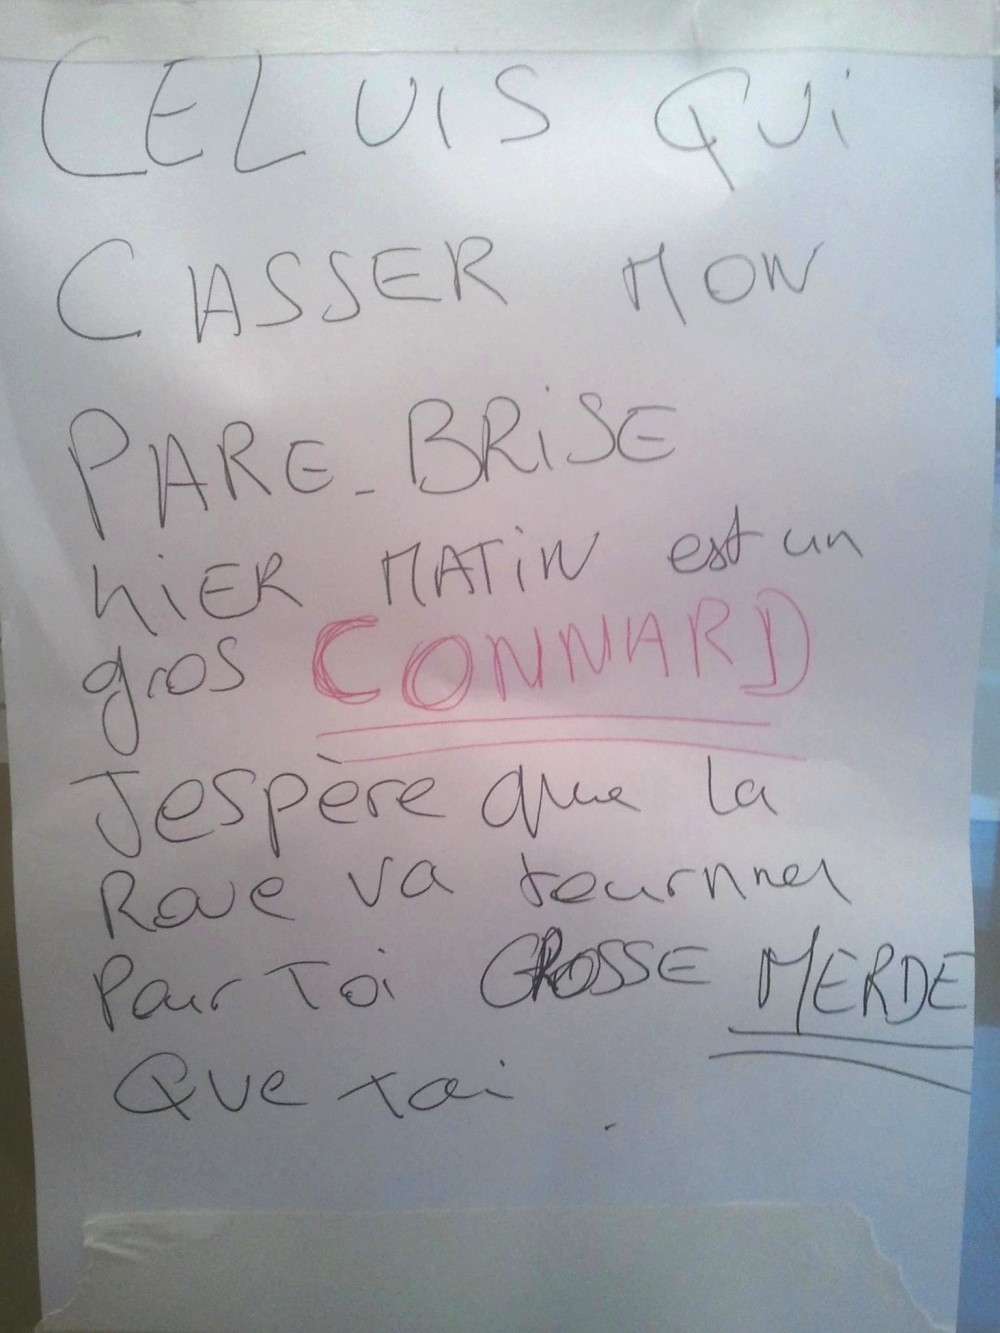 CELUIS QUi
CASSER MON
PARE-BRiSE
hiER MATiN est un
gros CONNARD
Jespère que la
Roue va tournner
Pour Toi GROSSE MERDE
Que toi.